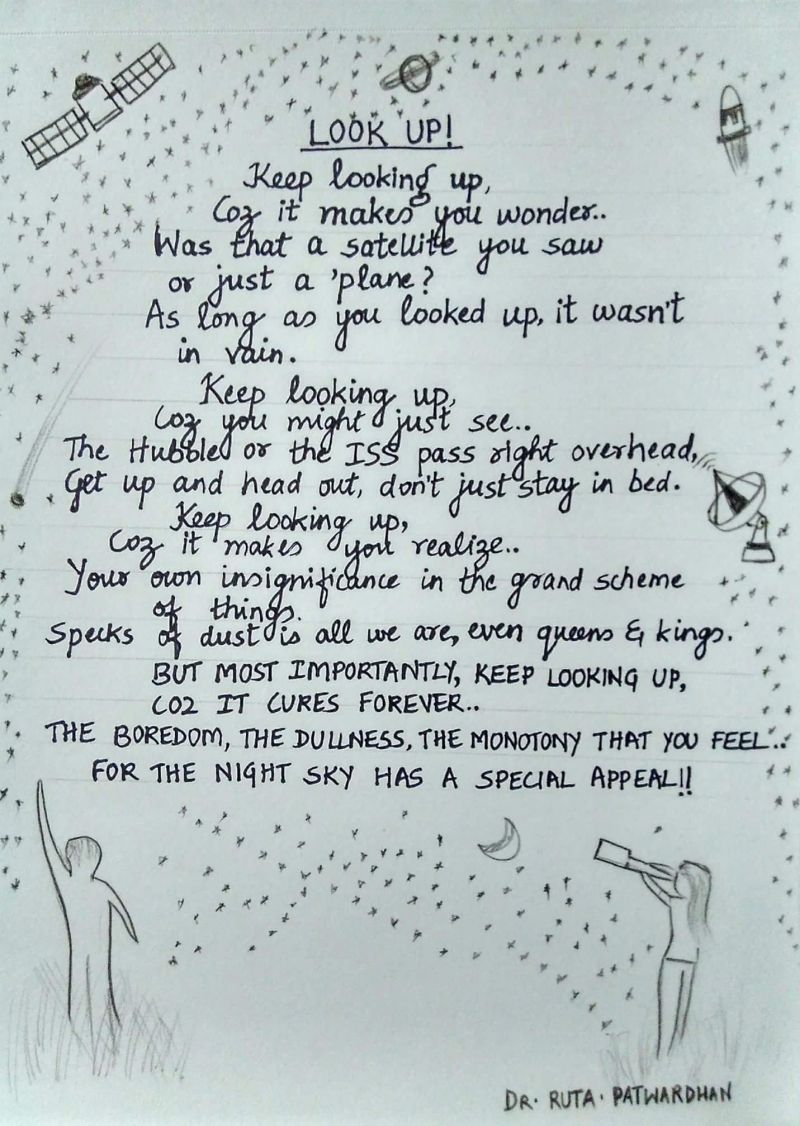 LOOK UP!
Keep looking up,
Coz it makes you wonder..
Was that a satellite you saw
or just a 'plane?
As long as you looked up, it wasn't
in vain.
Keep looking up,
Coz you might just see..
The Hubble or the ISS pass right overhead,
Get up and head out, don't just stay in bed.
Keep looking up,
Coz it makes you realize..
Your own insignificance in the grand scheme
of things.
Specks of dust is all we are, even queens & kings.
BUT MOST IMPORTANTLY, KEEP LOOKING UP,
COZ IT CURES FOREVER..
THE BOREDOM, THE DULLNESS, THE MONOTONY THAT YOU FEEL..
FOR THE NIGHT SKY HAS A SPECIAL APPEAL!!
DR. RUTA. PATWARDHAN